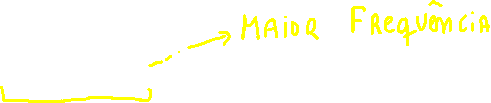 MAIOR FREQUÊNCIA